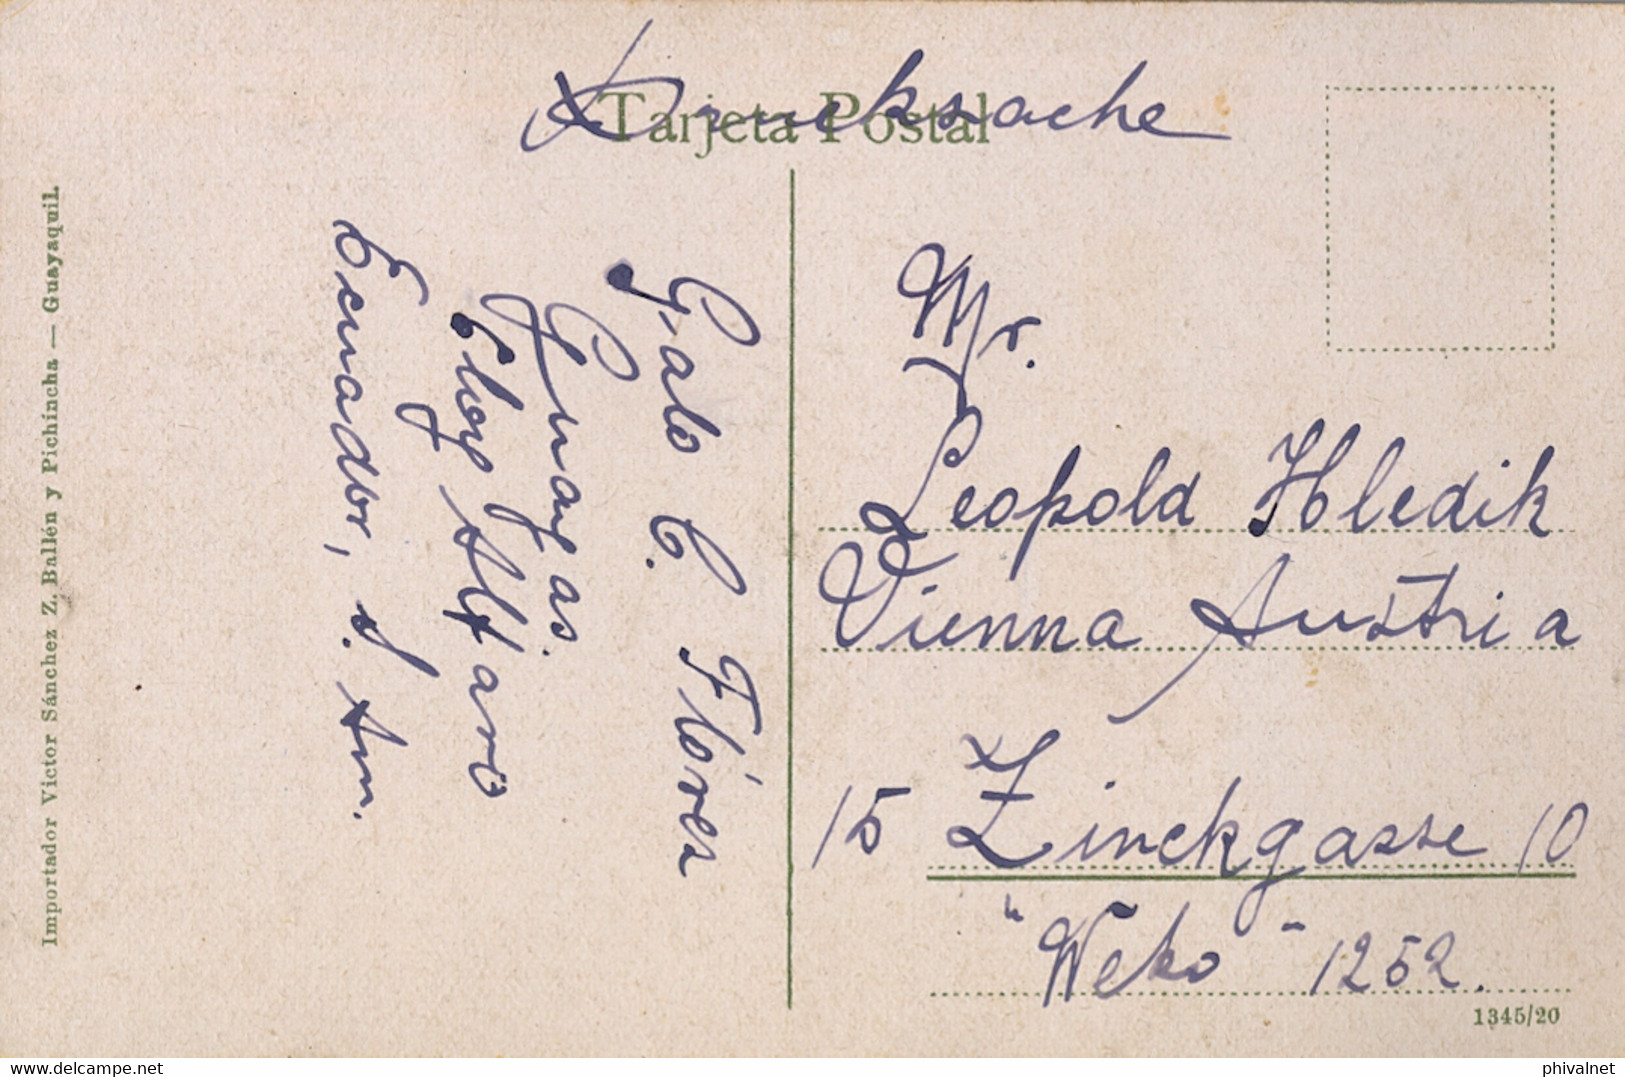 Drucksache
Tarjeta Postal
Importador Victor Sánchez Z. Ballén y Pichincha — Guayaquil.
Galo C. Flórez
Guayas.
Eloy Alfaro
Ecuador, S. Am.
Mr.
Leopold Hledik
Vienna Austria
15 Zinckgasse 10
"Weko" 1252.
1345/20
www.delcampe.net
phivalnet